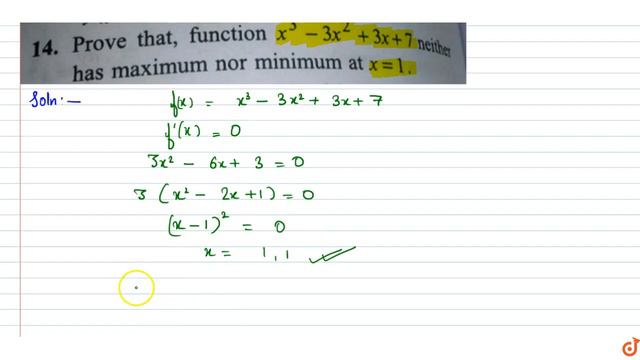 14. Prove that, function x³ − 3x² + 3x + 7 neither
has maximum nor minimum at x = 1.
Soln:—
f(x) = x³ − 3x² + 3x + 7
f'(x) = 0
3x² − 6x + 3 = 0
3 (x² − 2x + 1) = 0
(x − 1)² = 0
x = 1, 1
doubtnut